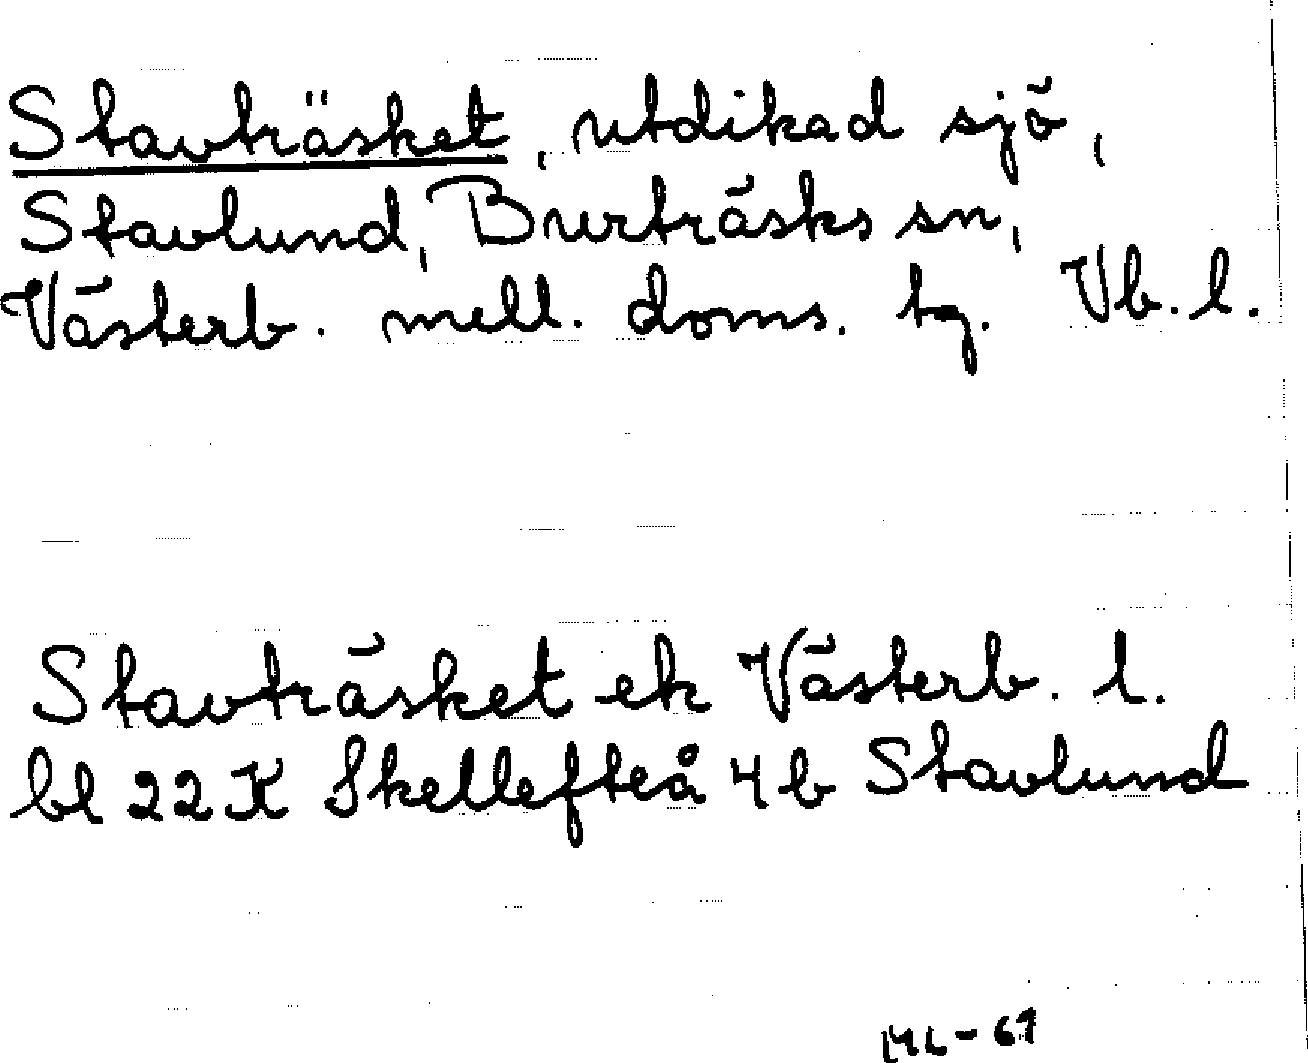 Stavträsket, utdikad sjö,
Stavlund, Burträsks sn,
Västerb. mell. doms. tg. Vb. l.
Stavträsket ek Västerb. l.
bl 22 K Skellefteå 4 b Stavlund
ML-61